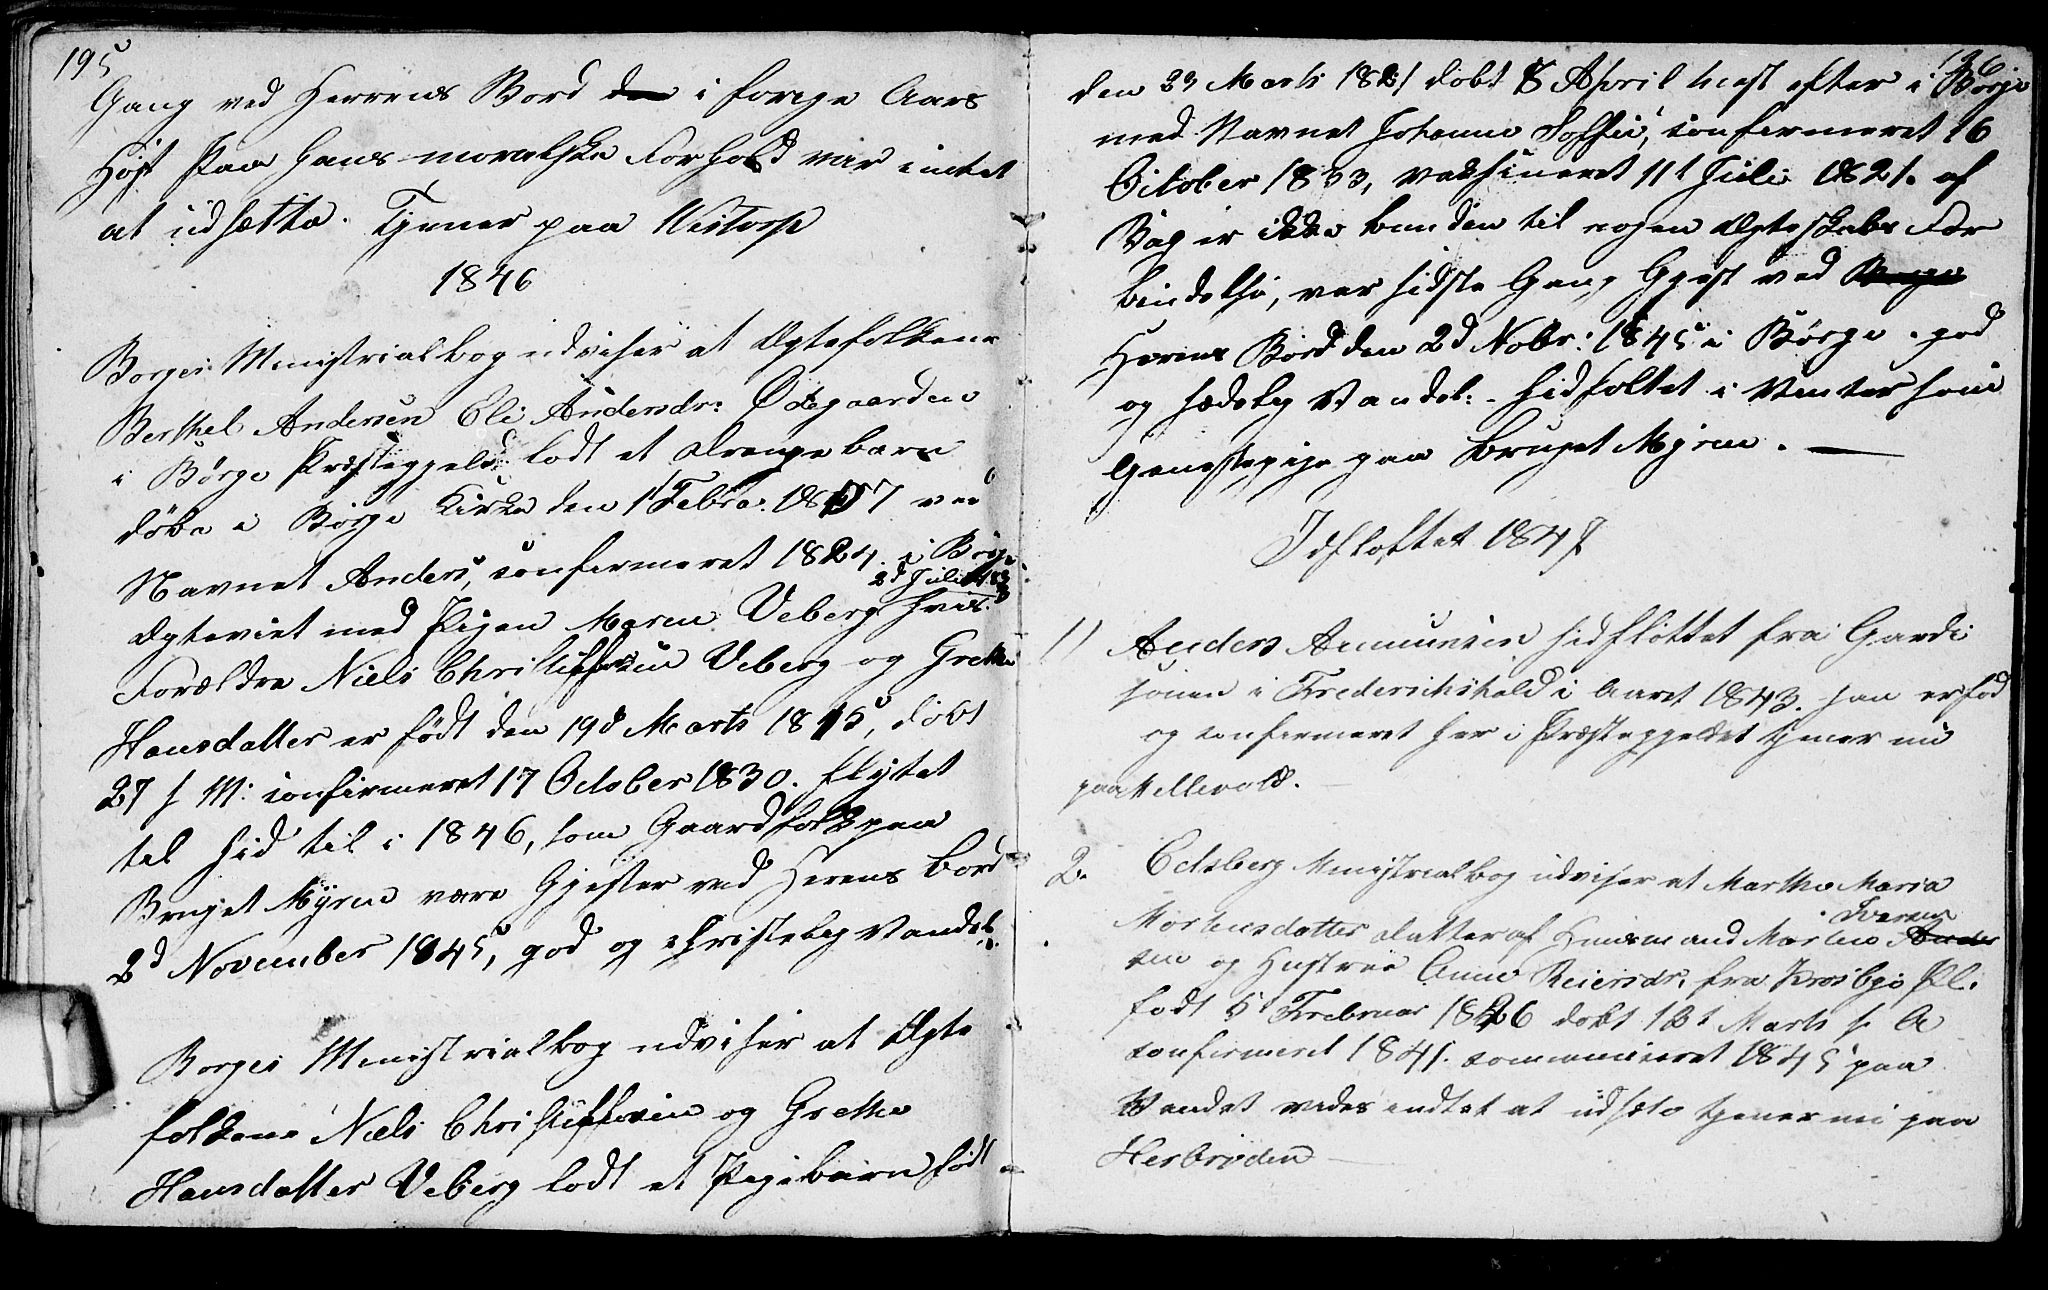 195
Gang ved Herrens Bord i forige Aars
Høst Paa hans moralske Forhold var intet
at udsætte. Tjener paa Vistorp
1846
Borges Ministrialbog udviser at Ægtefolkene
Berthel Andersen Eli Andersdr: Ødegaarden
i Børge Præsteggjeld lodt et Drengebarn
døbe i Børge Kirke den 1t Febra: 1807 ved
Navnet Anders, confermeret 1824 i Børge
2d Juli
Ægteviet med Pigen Maren Veberg hvis
Forældre Niels Christoffersen Veberg og Grethe
Hansdatter er født den 19d Marts 1815, døbt
27 s M: confirmeret 17 October 1830. flyttet
til hid til i 1846, som Gaardfolk paa
Bruget Myren være Gjester ved Herens Bord
2d November 1845, god og christelig Vandel.
Borges Ministrialbog udviser at Ægte
folkene Niels Christoffersen og Grethe
Hansdatter Veberg lodt et Pigebarn født
196
den 23 Marts 1821 døbt 8 April næst efter i Børge
med Navnet Johanne Sophie, confermeret 16
October 1833, vaksineret 11t Juli 1821. af
Vog er ikke bunden til nogen Ægteskabs For
bindelse, var sidste Gang Gjest ved
Herens Bord den 2d Nobr: 1845 i Børge. god
og sædelig Vandel. - hidfoltet i Vinter som
Genestepige paa bruget Myren. —
Idfloftet 1847
1) Anders Amunsen hidflöttet fra Garde
sonen i Frederichshald i Aaret 1843. han er fød
og confermeret her i Præsteggjeldet tjener nu
paa Mellevold.
2. Edsberg Ministrialbog udviser at Marthe Maria
Iversen
Mortensdatter datter af Huusmand Morten Ander
sen og Hustrue Anne Reiersdr. fra Krosbye Pl.
født 5t Frebruar 1826 døbt 12t Marts s. A
confermeret 1841. communiseret 1845 paa
Vandet vides endtet at udsæte tjener nu paa
Herbrøden —